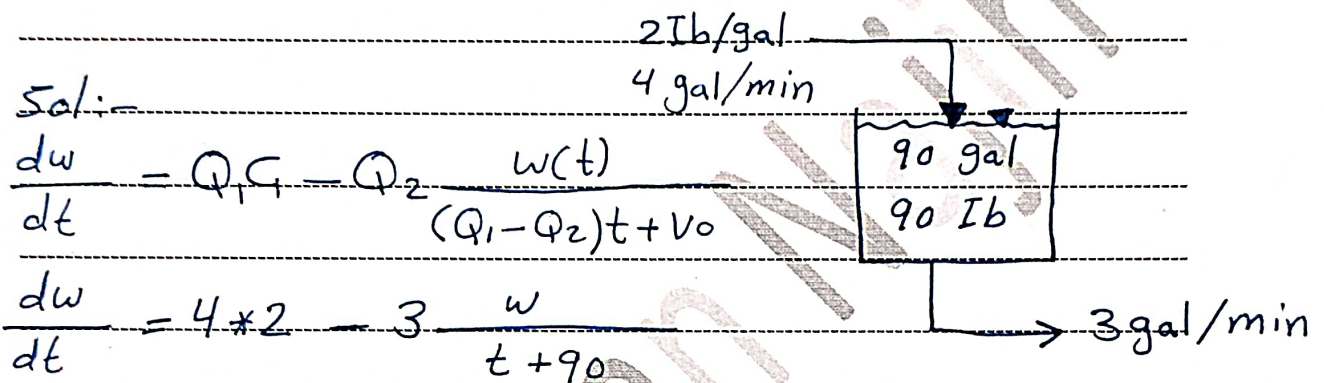 2Ib/gal
4 gal/min
Sol:-
dw/dt = Q₁C₁ - Q₂ w(t)/((Q₁-Q₂)t+Vo)
90 gal
90 Ib
dw/dt = 4*2 - 3 w/(t+90)
3gal/min